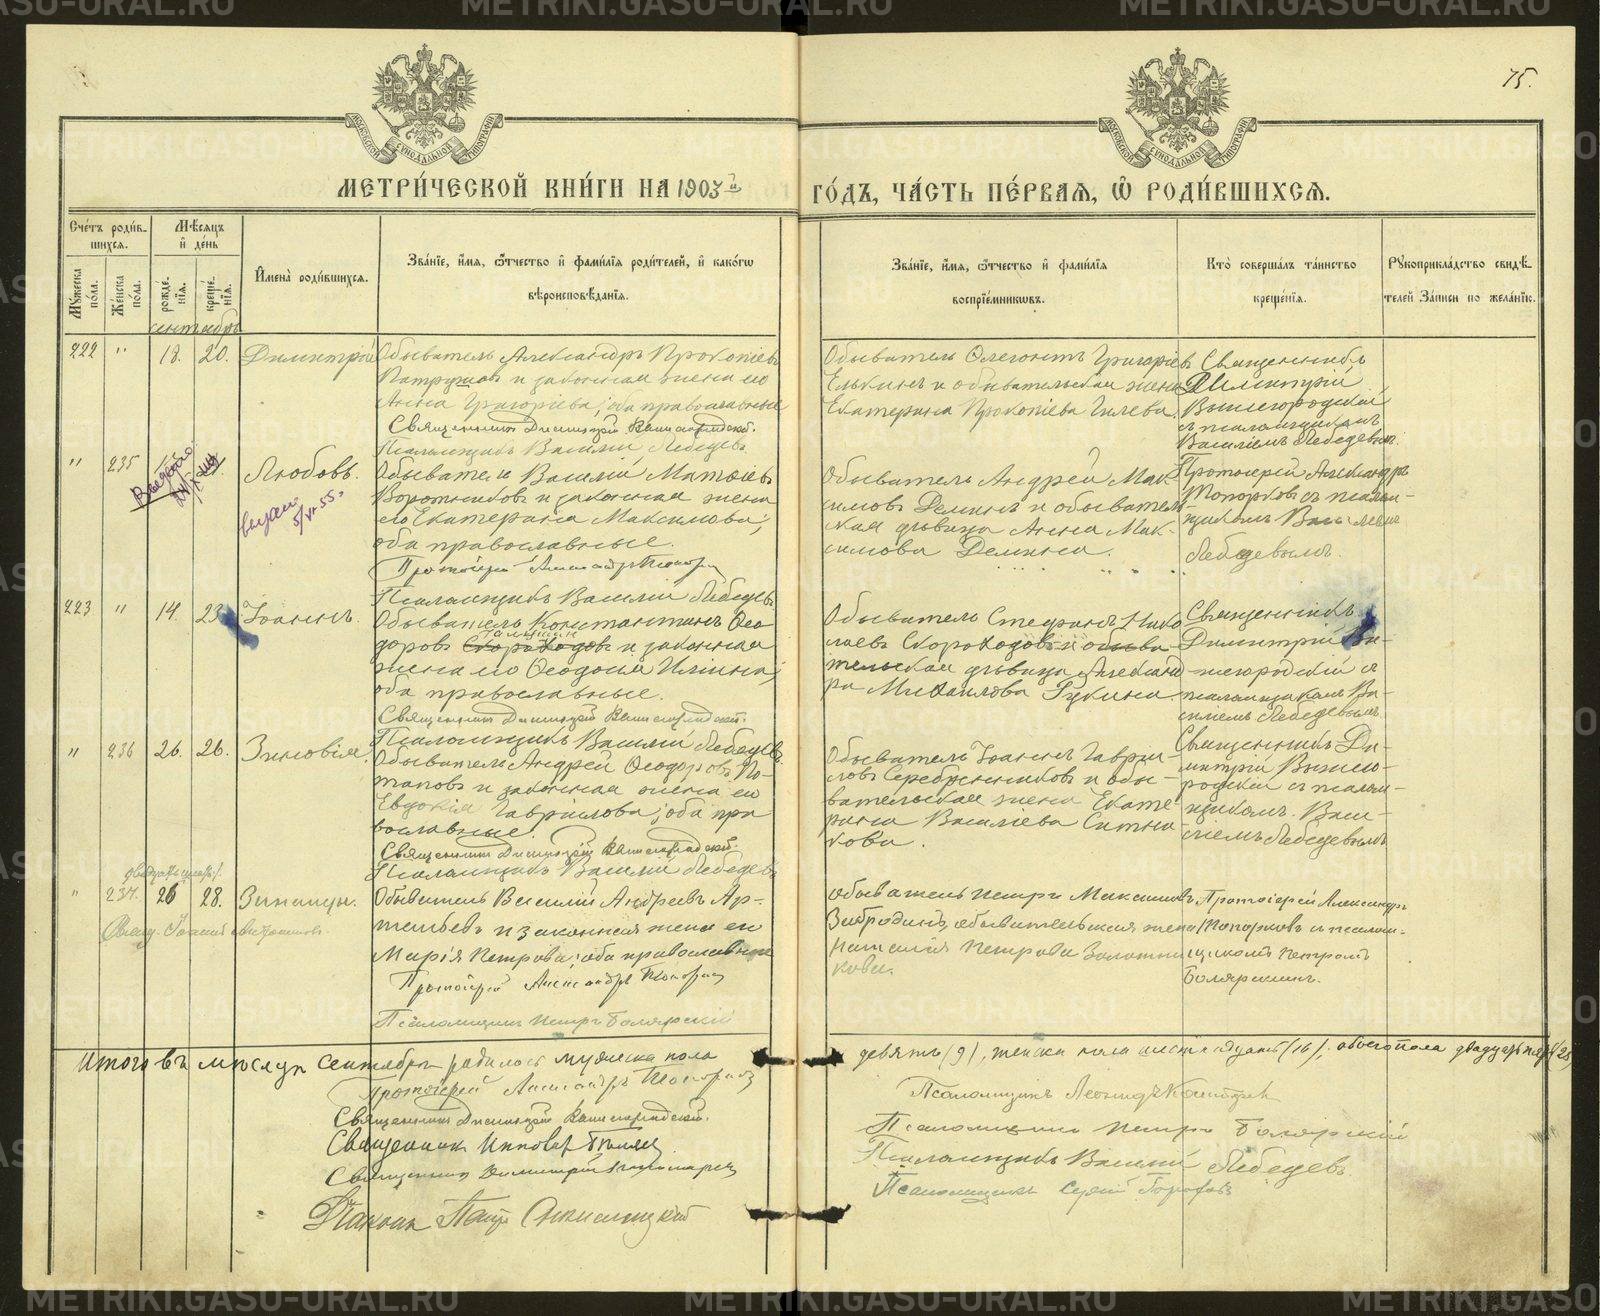 METRIKI.GASO-URAL.RU
75.
МОСКОВСКОЙ СѴНОДАЛЬНОЙ ТИПОГРАФІИ
МОСКОВСКОЙ СѴНОДАЛЬНОЙ ТИПОГРАФІИ
МЕТРИ́ЧЕСКОЙ КНИ́ГИ НА 1903й ГО́ДЪ, ЧА́СТЬ ПЕ́РВАѦ, Ѡ РОДИ́ВШИХСѦ.
Сче́тъ роди́вшихсѧ.
Мꙋ́жеска по́ла.
Же́нска по́ла.
Мѣ́сѧцъ и҆ де́нь
рожде́нїѧ.
креще́нїѧ.
И҆мена̀ роди́вшихсѧ.
Зва́нїе, и҆́мѧ, ѻ҆́тчество и҆ фами́лїѧ роди́телей, и҆ како́гѡ
вѣроисповѣ́данїѧ.
Зва́нїе, и҆́мѧ, ѻ҆́тчество и҆ фами́лїѧ
воспрїе́мникѡвъ.
Кто̀ соверша́лъ та́инство
креще́нїѧ.
Рꙋкоприкла́дство свидѣ́телей За́писи по жела́нїю.
сентябрь
222 " 18. 20. Димитрій
Обыватель Александръ Прокопіевъ
и законная жена его
Анна Григоріева; оба православные
Священникъ Димитрій Вышегородскій.
Псаломщикъ Василій Лебедевъ
Обыватель Григоріевъ
Елькинъ и обывательская жена
Екатерина Прокопіева Гилева.
Священникъ
Димитрій
Вышегородскій
съ псаломщикомъ
Василіемъ Лебедевымъ.
" 235 Любовь.
Обыватель Василій
Воротниковъ и законная жена
его Екатерина Максимова;
оба православные.
Протоіерей Александръ Топорковъ
Псаломщикъ Василій Лебедевъ
Обыватель Андрей Максимовъ
Деминъ и обывательская
дѣвица Анна Максимова
Демина.
Протоіерей Александръ
Топорковъ съ псаломщикомъ
Василіемъ
Лебедевымъ.
223 " 14. 23 Іоаннъ.
Обыватель Константинъ Ѳеодоровъ
Скороходовъ и законная
жена его Ѳеодосія Ильина;
оба православные.
Священникъ Димитрій Вышегородскій.
Псаломщикъ Василій Лебедевъ.
Обыватель Стефанъ Николаевъ
Скороходовъ и обывательская
дѣвица Александра
Михаилова Гукина.
Священникъ
Димитрій Вышегородскій съ
псаломщикомъ Василіемъ
Лебедевымъ
" 236 26. 26. Зиновія.
Обыватель Андрей Ѳеодоровъ Потаповъ
и законная жена его
Евдокія Гавріилова; оба православные.
Священникъ Димитрій Вышегородскій.
Псаломщикъ Василій Лебедевъ
Обыватель Іоаннъ Гавріиловъ
Серебренниковъ и обывательская
жена Екатерина
Василіева Ситникова.
Священникъ Димитрій
Вышегородскій
съ псаломщикомъ
Василіемъ Лебедевымъ
" 237. 26 28. Зинаида.
Обыватель Василій Андреевъ Артемьевъ
и законная жена его
Марія Петрова; оба православные
Протоіерей Александръ Топорковъ
Псаломщикъ Петръ Боярскій
Обыватель Петръ Максимовъ
обывательская жена
Наталія Петрова Золотникова.
Протоіерей Александръ
Топорковъ съ псаломщикомъ
Петромъ
Боярскимъ.
Итого въ мѣсяцѣ Сентябрѣ родилось мужеска пола девять (9), женска пола шестнадцать (16), обоего пола двадцать пять (25)
Протоіерей Александръ Топорковъ
Священникъ Димитрій Вышегородскій.
Священникъ
Священникъ Димитрій Пономаревъ
Діаконъ Петръ
Псаломщикъ Леонидъ
Псаломщикъ Петръ Боярскій
Псаломщикъ Василій Лебедевъ
Псаломщикъ Сергій